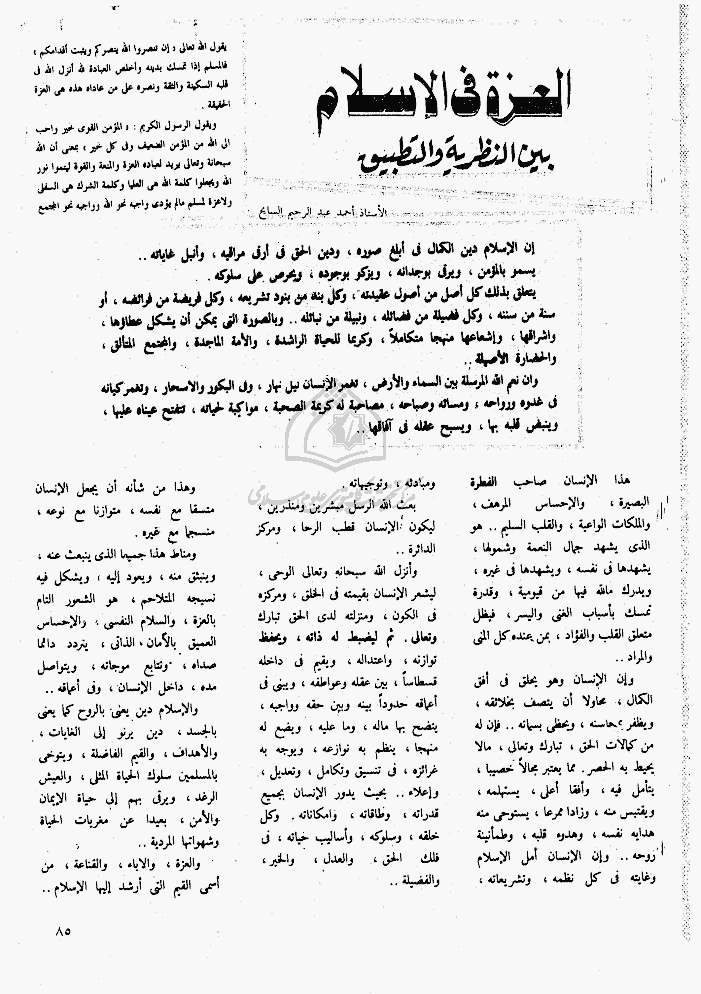 العزة فى الإسلام
بين النظرية والتطبيق
الأستاذ أحمد عبد الرحيم السايح
يقول الله تعالى « إن تنصروا الله ينصركم ويثبت أقدامكم »
فالمسلم إذا تمسك بدينه وأخلص العبادة لله أنزل الله فى
قلبه السكينة والثقة ونصره على من عاداه هذه هى العزة
الحقيقة .
ويقول الرسول الكريم : « المؤمن القوى خير واحب
الى الله من المؤمن الضعيف وفى كل خير » بمعنى أن الله
سبحانة وتعالى يريد لعباده العزة والمنعة والقوة ليتموا نور
الله ويجعلوا كلمة الله هى العليا وكلمة الشرك هى السفلى
ولاعزة لمسلم مالم يؤدى واجبه نحو الله وواجبه نحو المجتمع
إن الإسلام دين الكمال فى أبلغ صوره ، ودين الحق فى أرقى مراقيه ، وأنبل غاياته ..
يسمو بالمؤمن ، ويرقى بوجدانه ، ويزكو بوجوده ، ويحرص على سلوكه .
يتعلق بذلك كل أصل من أصول عقيدته ، وكل بند من بنود تشريعه ، وكل فريضة من فرائضه ، أو
سنة من سننه ، وكل فضيلة من فضائله ، ونبيلة من نبائله .. وبالصورة التى يمكن أن يشكل عطاؤها ،
واشراقها ، وإشعاعها منهجا متكاملاً ، وكريما للحياة الراشدة ، والأمة الماجدة ، والمجتمع المتألق ،
والحضارة الأصيلة ..
وان نعم الله المرسلة بين السماء والأرض ، تغمر الإنسان ليل نهار ، وفى البكور والاسحار ، وتغمر كيانه
فى غدوه ورواحه ، ومسائه وصباحه ، مصاحبة له كريمة الصحبة ، مواكبة لحياته ، تتفتح عيناه عليها ،
وينبض قلبه بها ، ويسبح عقله فى آفاقها ..
هذا الإنسان صاحب الفطرة
البصيرة ، والإحساس المرهف ،
والملكات الواعية ، والقلب السليم .. هو
الذى يشهد جمال النعمة وشمولها ،
يشهدها فى نفسه ، ويشهدها فى غيره ،
ويدرك مالله فيها من قيومية ، وقدرة
تمسك بأسباب الغنى واليسر ، فيظل
متعلق القلب والفؤاد ، بمن عنده كل المنى
والمراد ..
وإن الإنسان وهو يحلق فى أفق
الكمال ، محاولا أن يتصف بخلائقه ،
ويظفر بمحاسنه ، ويحظى بسماته .. فإن له
من كمالات الحق ، تبارك وتعالى ، مالا
يحيط به الحصر . مما يعتبر مجالاً خصيبا ،
يتأمل فيه ، وأفقا أعلى ، يستلهمه ،
ويقتبس منه ، وزادا ممرعا ، يستوحى منه
هدايه نفسه ، وهدوه قلبه ، وطمأنينة
روحه .. وإن الإنسان أمل الإسلام
وغايته فى كل نظمه ، وتشريعاته ،
ومبادئه ، وتوجيهاته .
بعث الله الرسل مبشرين ومنذرين ،
ليكون الإنسان قطب الرحا ، ومركز
الدائرة ..
وأنزل الله سبحانه وتعالى الوحى ،
ليشعر الإنسان بقيمته فى الخلق ، ومركزه
فى الكون ، ومنزلته لدى الحق تبارك
وتعالى . ثم ليضبط له ذاته ، ويحفظ
توازنه ، واعتداله ، ويقيم فى داخله
قسطاساً ، بين عقله وعواطفه ، ويبنى فى
أعماقه حدوداً بينه وبين حقه وواجبه ،
يتضح بها ماله ، وما عليه ، ويضع له
منهجا ، ينظم به نوازعه ، ويوجه به
غرائزه ، فى تنسيق وتكامل ، وتعديل ،
وإعلاء .. بحيث يدور الإنسان بجميع
قدراته ، وطاقاته ، وامكاناته . وكل
خلقه ، وسلوكه ، وأساليب حياته ، فى
فلك الحق ، والعدل ، والخير ،
والفضيلة ..
وهذا من شأنه أن يجعل الإنسان
متسقا مع نفسه ، متوازنا مع نوعه ،
منسجما مع غيره .
ومناط هذا جميعا الذى ينبعث عنه ،
وينبثق منه ، ويعود إليه ، ويشكل فيه
نسيجه المتلاحم ، هو الشعور التام
بالعزة ، والسلام النفسى ، والإحساس
العميق بالأمان ، الذاتى ، يتردد دائما
صداه ، وتتابع موجاته ، ويتواصل
مده ، داخل الإنسان ، وفى أعماقه ..
والإسلام دين يعنى بالروح كما يعنى
بالجسد ، دين يرنو إلى الغايات ،
والأهداف ، والقيم الفاضلة ، ويتوخى
بالمسلمين سلوك الحياة المثلى ، والعيش
الرغد ، ويرقى بهم إلى حياة الإيمان
والأمن ، بعيدا عن مغريات الحياة
وشهواتها المردية ..
والعزة ، والاباء ، والقناعة ، من
أسمى القيم التى أرشد إليها الإسلام ..
٨٥